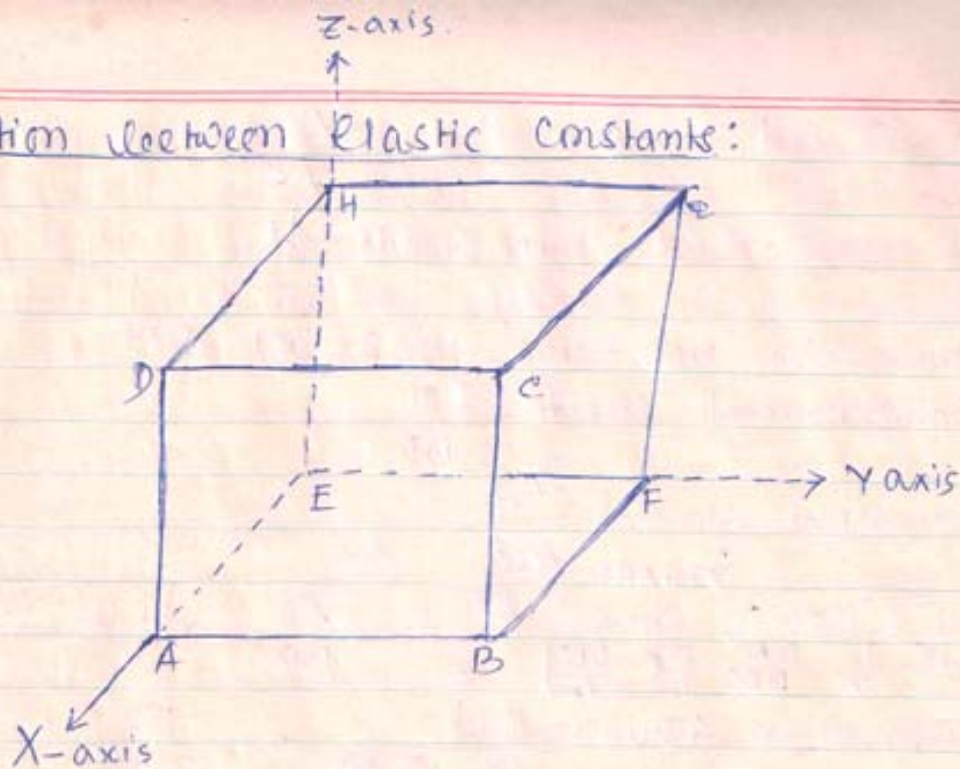 Z-axis.
tion between Elastic Constants:
H
G
D
C
E
F
Y axis
A
B
X-axis